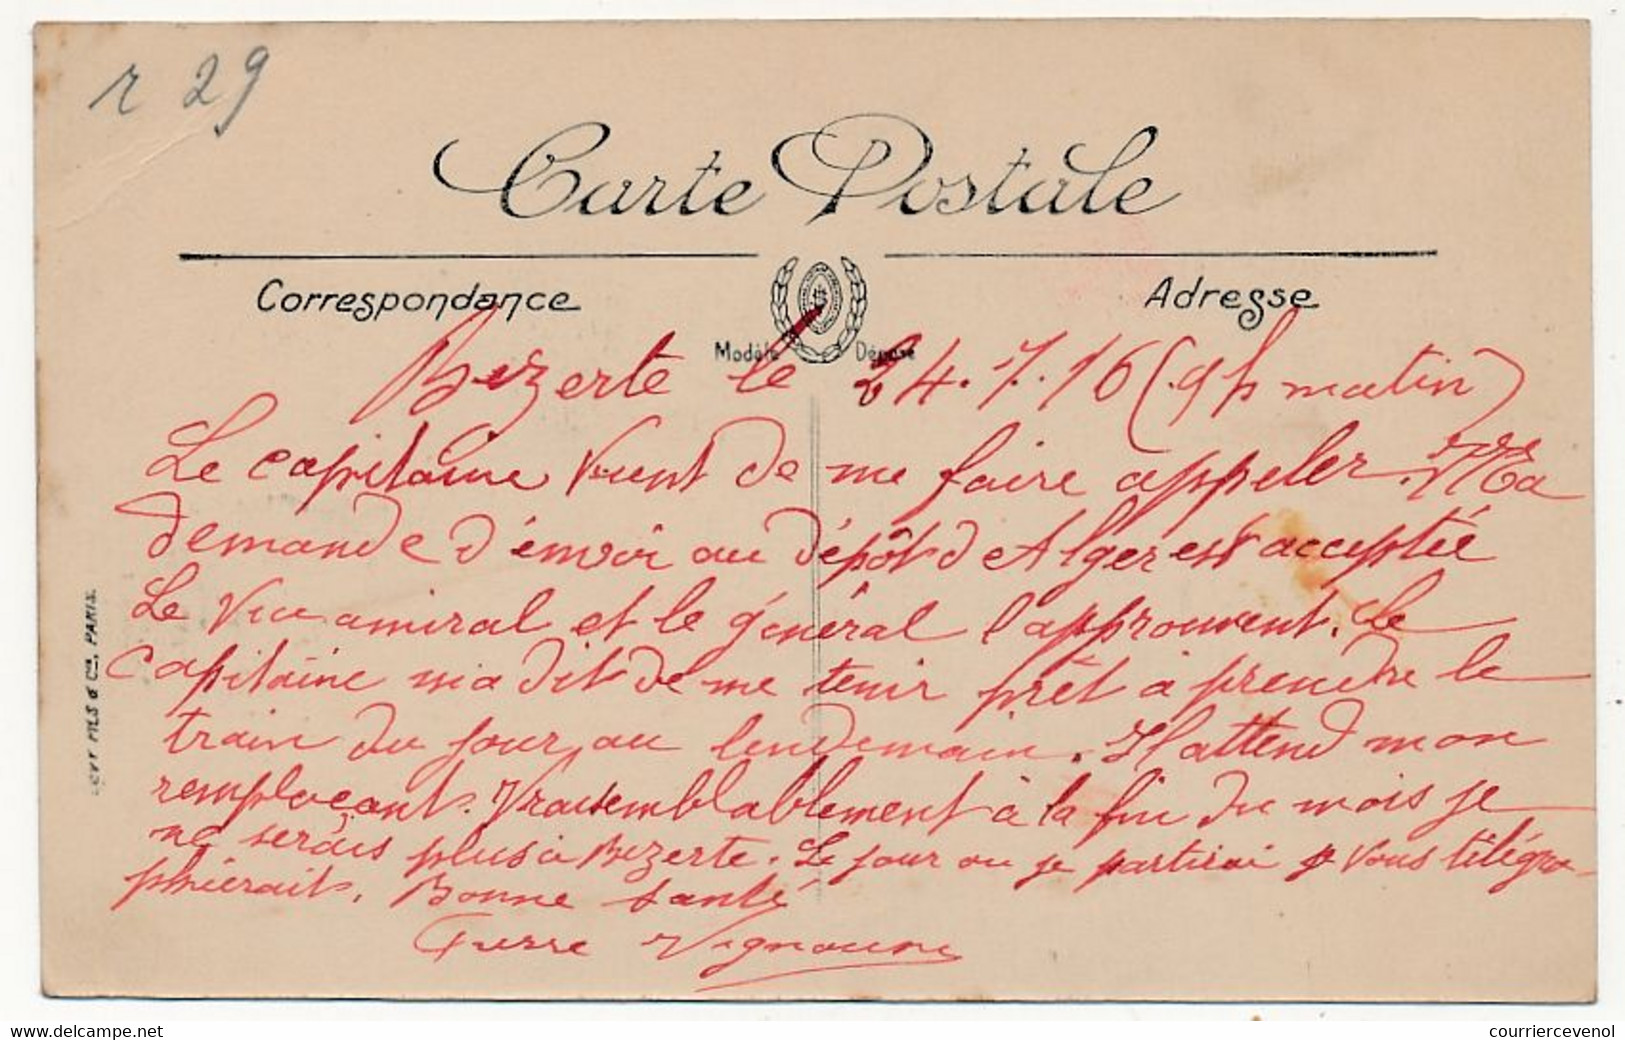 r 29
Carte Postale
Correspondance
Adresse
Modèle Déposé
Bizerte le 24.7.16 (9 h matin)
Le capitaine vient de me faire appeler. Ma
demande d'envoi au dépôt d'Alger est acceptée
Le vice amiral et le général l'approuvent. Le
capitaine m'a dit de me tenir prêt à prendre le
train du jour au lendemain. Il attend mon
remplaçant. Vraisemblablement à la fin du mois je
ne serais plus à Bizerte. Le jour ou je partirai je vous télégra-
phierait. Bonne santé
Pierre
LEVY FILS & Cie, PARIS.
courriercevenol.com